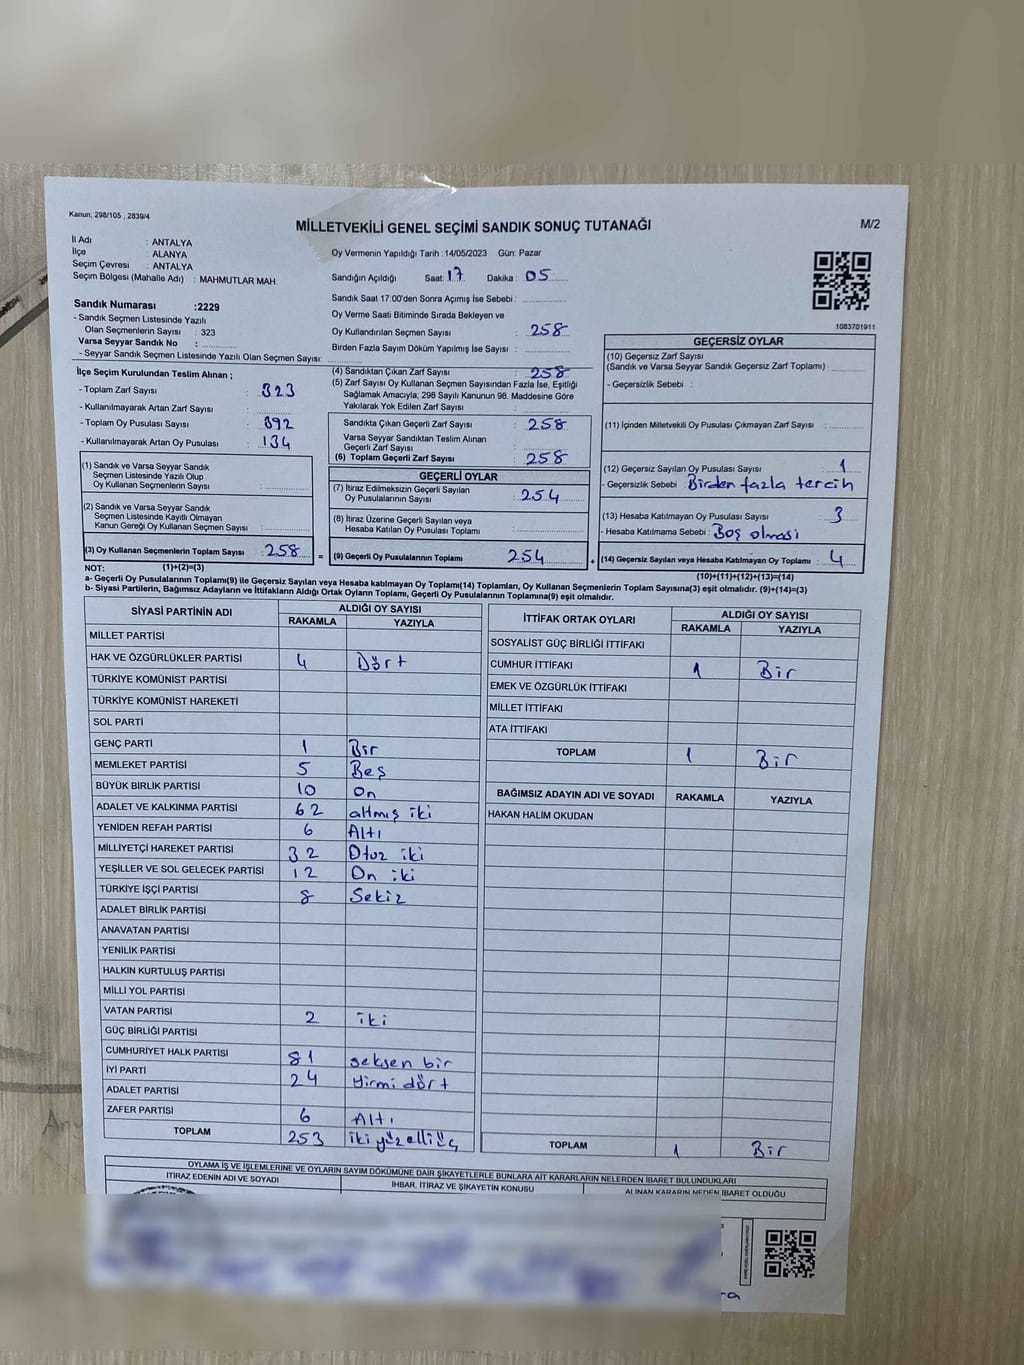 Kanun; 298/105 , 2839/4
MİLLETVEKİLİ GENEL SEÇİMİ SANDIK SONUÇ TUTANAĞI
M/2
İl Adı : ANTALYA
İlçe : ALANYA
Seçim Çevresi : ANTALYA
Seçim Bölgesi (Mahalle Adı) : MAHMUTLAR MAH.
Oy Vermenin Yapıldığı Tarih : 14/05/2023 Gün: Pazar
Sandığın Açıldığı Saat: 17 Dakika : 05
Sandık Saat 17:00'den Sonra Açımış İse Sebebi :
Oy Verme Saati Bitiminde Sırada Bekleyen ve
Oy Kullandırılan Seçmen Sayısı : 258
Birden Fazla Sayım Döküm Yapılmış İse Sayısı :
Sandık Numarası :2229
- Sandık Seçmen Listesinde Yazılı
Olan Seçmenlerin Sayısı : 323
Varsa Seyyar Sandık No :
- Seyyar Sandık Seçmen Listesinde Yazılı Olan Seçmen Sayısı:
1083701911
İlçe Seçim Kurulundan Teslim Alınan ;
- Toplam Zarf Sayısı : 323
- Kullanılmayarak Artan Zarf Sayısı :
- Toplam Oy Pusulası Sayısı : 392
- Kullanılmayarak Artan Oy Pusulası : 134
(1) Sandık ve Varsa Seyyar Sandık
Seçmen Listesinde Yazılı Olup
Oy Kullanan Seçmenlerin Sayısı :
(2) Sandık ve Varsa Seyyar Sandık
Seçmen Listesinde Kayıtlı Olmayan
Kanun Gereği Oy Kullanan Seçmen Sayısı :
(3) Oy Kullanan Seçmenlerin Toplam Sayısı : 258
(4) Sandıktan Çıkan Zarf Sayısı : 258
(5) Zarf Sayısı Oy Kullanan Seçmen Sayısından Fazla İse, Eşitliği
Sağlamak Amacıyla; 298 Sayılı Kanunun 98. Maddesine Göre
Yakılarak Yok Edilen Zarf Sayısı :
Sandıkta Çıkan Geçerli Zarf Sayısı : 258
Varsa Seyyar Sandıktan Teslim Alınan
Geçerli Zarf Sayısı :
(6) Toplam Geçerli Zarf Sayısı : 258
GEÇERLİ OYLAR
(7) İtiraz Edilmeksizin Geçerli Sayılan
Oy Pusulalarının Sayısı : 254
(8) İtiraz Üzerine Geçerli Sayılan veya
Hesaba Katılan Oy Pusulası Toplamı :
= (9) Geçerli Oy Pusulalarının Toplamı 254
GEÇERSİZ OYLAR
(10) Geçersiz Zarf Sayısı
(Sandık ve Varsa Seyyar Sandık Geçersiz Zarf Toplamı) :
- Geçersizlik Sebebi :
(11) İçinden Milletvekili Oy Pusulası Çıkmayan Zarf Sayısı :
(12) Geçersiz Sayılan Oy Pusulası Sayısı : 1
- Geçersizlik Sebebi : Birden fazla tercih
(13) Hesaba Katılmayan Oy Pusulası Sayısı : 3
- Hesaba Katılmama Sebebi : Boş olması
+ (14) Geçersiz Sayılan veya Hesaba Katılmayan Oy Toplamı : 4
NOT: (1)+(2)=(3)
(10)+(11)+(12)+(13)=(14)
a- Geçerli Oy Pusulalarının Toplamı(9) ile Geçersiz Sayılan veya Hesaba katılmayan Oy Toplamı(14) Toplamları, Oy Kullanan Seçmenlerin Toplam Sayısına(3) eşit olmalıdır. (9)+(14)=(3)
b- Siyasi Partilerin, Bağımsız Adayların ve İttifakların Aldığı Ortak Oyların Toplamı, Geçerli Oy Pusulalarının Toplamına(9) eşit olmalıdır.
SİYASİ PARTİNİN ADI ALDIĞI OY SAYISI
RAKAMLA YAZIYLA
MİLLET PARTİSİ
HAK VE ÖZGÜRLÜKLER PARTİSİ 4 Dört
TÜRKİYE KOMÜNİST PARTİSİ
TÜRKİYE KOMÜNİST HAREKETİ
SOL PARTİ
GENÇ PARTİ 1 Bir
MEMLEKET PARTİSİ 5 Beş
BÜYÜK BİRLİK PARTİSİ 10 On
ADALET VE KALKINMA PARTİSİ 62 altmış iki
YENİDEN REFAH PARTİSİ 6 Altı
MİLLİYETÇİ HAREKET PARTİSİ 32 Otuz iki
YEŞİLLER VE SOL GELECEK PARTİSİ 12 On iki
TÜRKİYE İŞÇİ PARTİSİ 8 Sekiz
ADALET BİRLİK PARTİSİ
ANAVATAN PARTİSİ
YENİLİK PARTİSİ
HALKIN KURTULUŞ PARTİSİ
MİLLİ YOL PARTİSİ
VATAN PARTİSİ 2 iki
GÜÇ BİRLİĞİ PARTİSİ
CUMHURİYET HALK PARTİSİ 81 seksen bir
İYİ PARTİ 24 Yirmi dört
ADALET PARTİSİ
ZAFER PARTİSİ 6 Altı
TOPLAM 253 iki yüz elli üç
İTTİFAK ORTAK OYLARI ALDIĞI OY SAYISI
RAKAMLA YAZIYLA
SOSYALİST GÜÇ BİRLİĞİ İTTİFAKI
CUMHUR İTTİFAKI 1 Bir
EMEK VE ÖZGÜRLÜK İTTİFAKI
MİLLET İTTİFAKI
ATA İTTİFAKI
TOPLAM 1 Bir
BAĞIMSIZ ADAYIN ADI VE SOYADI RAKAMLA YAZIYLA
HAKAN HALİM OKUDAN
TOPLAM 1 Bir
OYLAMA İŞ VE İŞLEMLERİNE VE OYLARIN SAYIM DÖKÜMÜNE DAİR ŞİKAYETLERLE BUNLARA AİT KARARLARIN NELERDEN İBARET BULUNDUKLARI
İTİRAZ EDENİN ADI VE SOYADI İHBAR, İTİRAZ VE ŞİKAYETİN KONUSU ALINAN KARARIN NEDEN İBARET OLDUĞU